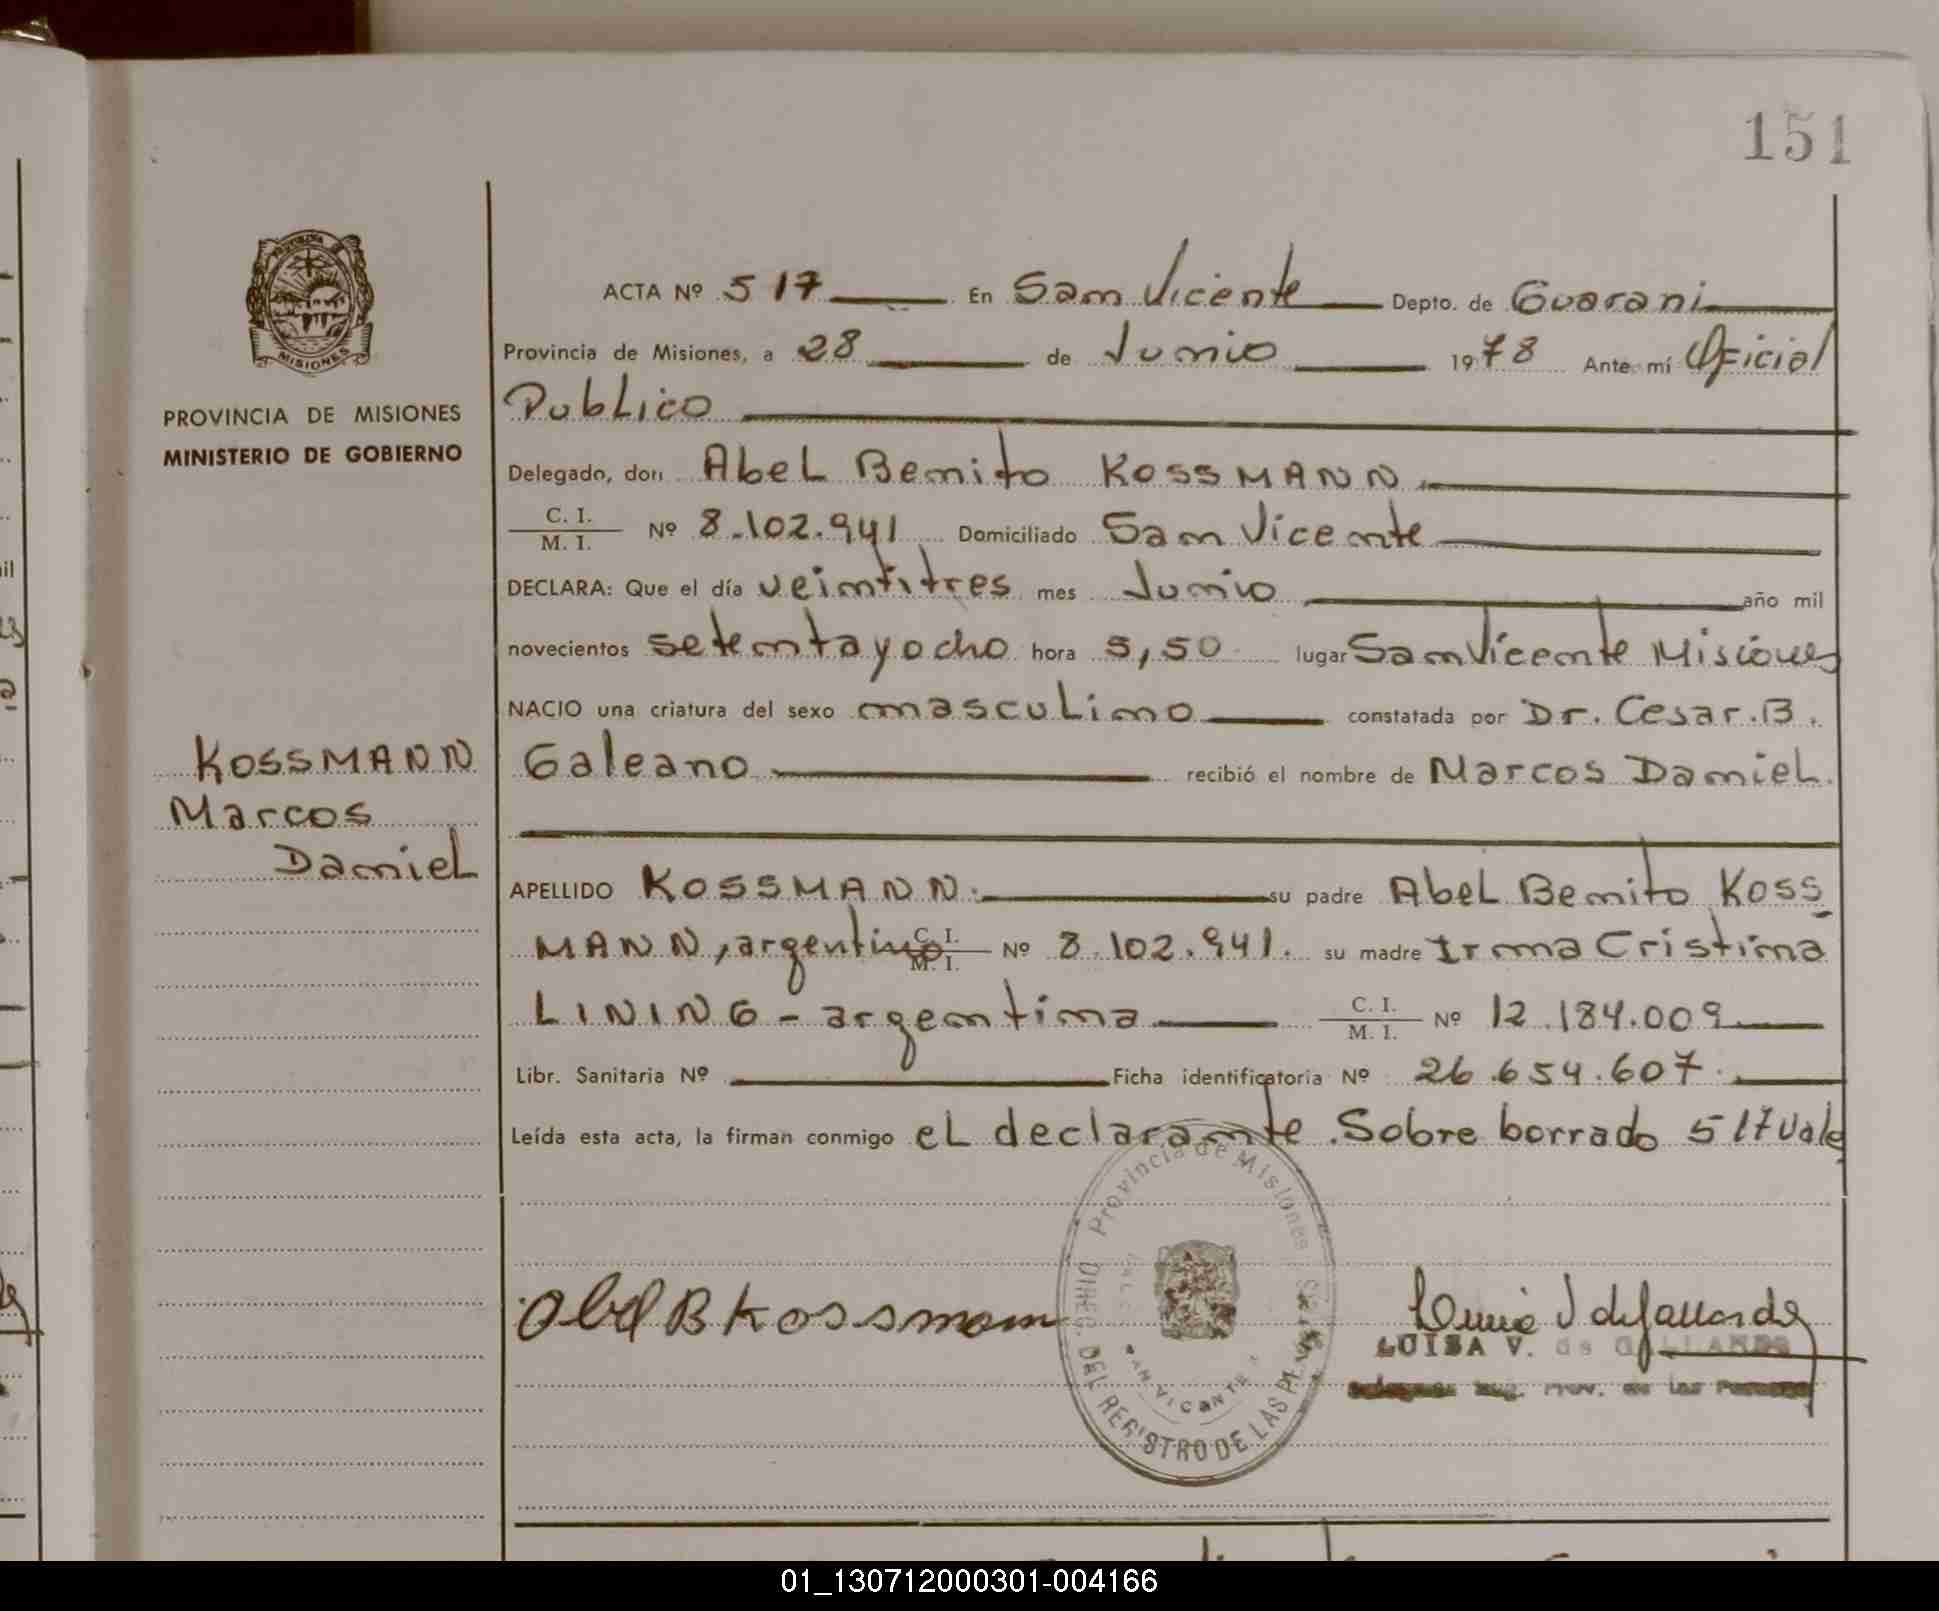 151
PROVINCIA DE MISIONES
MINISTERIO DE GOBIERNO
KOSSMANN
Marcos
Daniel
ACTA Nº 517 En San Vicente Depto. de Guarani
Provincia de Misiones, a 28 de Junio 1978 Ante mí Oficial
Publico
Delegado, don Abel Benito KOSSMANN
C. I.
M. I. Nº 8.102.941 Domiciliado San Vicente
DECLARA: Que el día veintitres mes Junio año mil
novecientos setentayocho hora 5,50 lugar San Vicente Misiones
NACIO una criatura del sexo masculino constatada por Dr. Cesar.B.
Galeano recibió el nombre de Marcos Daniel.
APELLIDO KOSSMANN. su padre Abel Benito KOSS
MANN, argentino C. I. M. I. Nº 8.102.941. su madre Irma Cristina
LINING - argentina C. I. M. I. Nº 12.184.009
Libr. Sanitaria Nº Ficha identificatoria Nº 26.654.607.
Leída esta acta, la firman conmigo el declarante. Sobre borrado 517 Vale
Provincia de Misiones
DIREC. DEL REGISTRO DE LAS
Abel B Kossmann
LUISA V. de GALLARDO
01_130712000301-004166